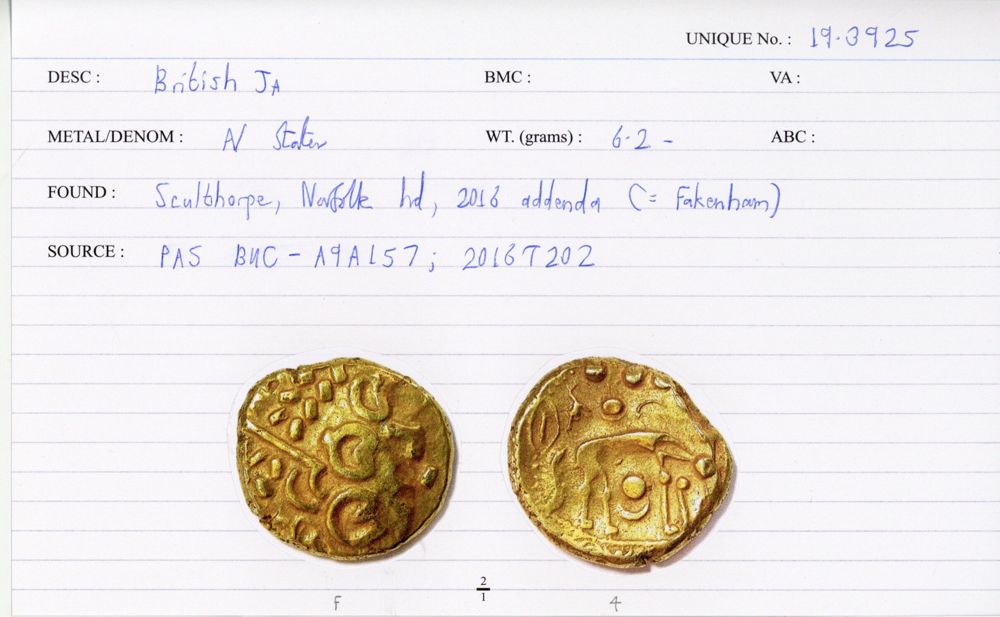 UNIQUE No. : 19.3925
DESC : British JA BMC : VA :
METAL/DENOM : N Stater WT. (grams) : 6.2 - ABC :
FOUND : Sculthorpe, Norfolk hd, 2016 addenda (= Fakenham)
SOURCE : PAS BUC-A9A157; 2016T202
2
1
F 4